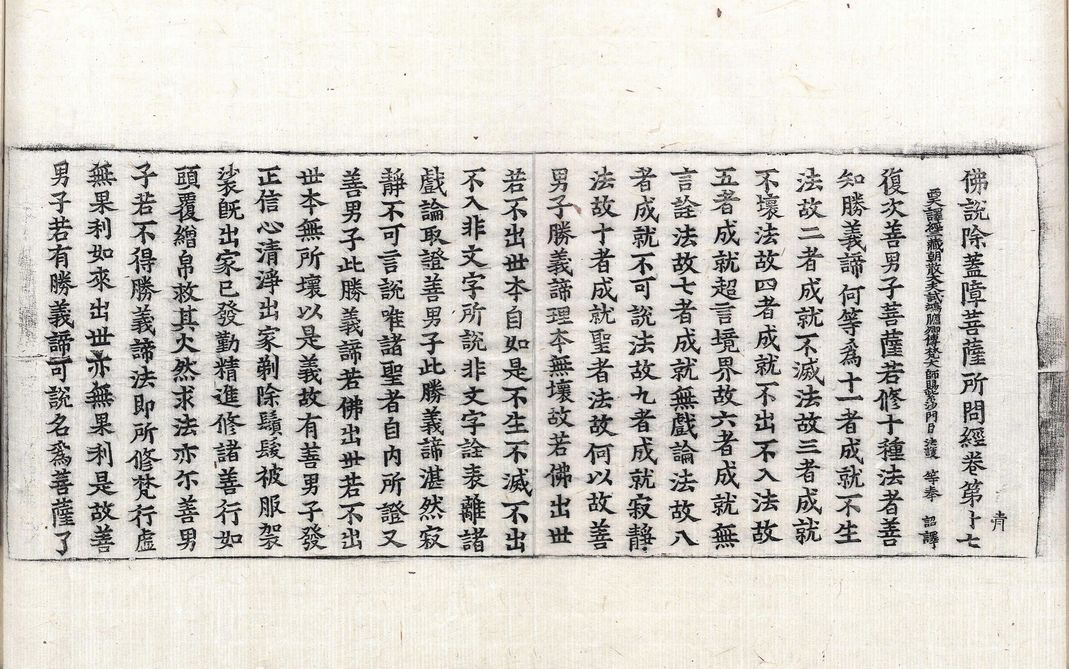 佛說除蓋障菩薩所問經卷第十七 青
譯經三藏朝散大夫試鴻臚卿傳梵大師賜紫沙門臣法護等奉 詔譯
復次善男子菩薩若修十種法者善
知勝義諦何等為十一者成就不生
法故二者成就不滅法故三者成就
不壞法故四者成就不出不入法故
五者成就超言境界故六者成就無
言詮法故七者成就無戲論法故八
者成就不可說法故九者成就寂靜
法故十者成就聖者法故何以故善
男子勝義諦理本無壞故若佛出世
若不出世本自如是不生不滅不出
不入非文字所說非文字詮表離諸
戲論取證善男子此勝義諦湛然寂
靜不可言說唯諸聖者自內所證又
善男子此勝義諦若佛出世若不出
世本無所壞以是義故有善男子發
正信心清淨出家剃除鬚髮被服袈
裟旣出家已發勤精進修諸善行如
頭覆繒帛救其火然求法亦尒善男
子若不得勝義諦法即所修梵行虛
無果利如來出世亦無果利是故善
男子若有勝義諦可說名為菩薩了